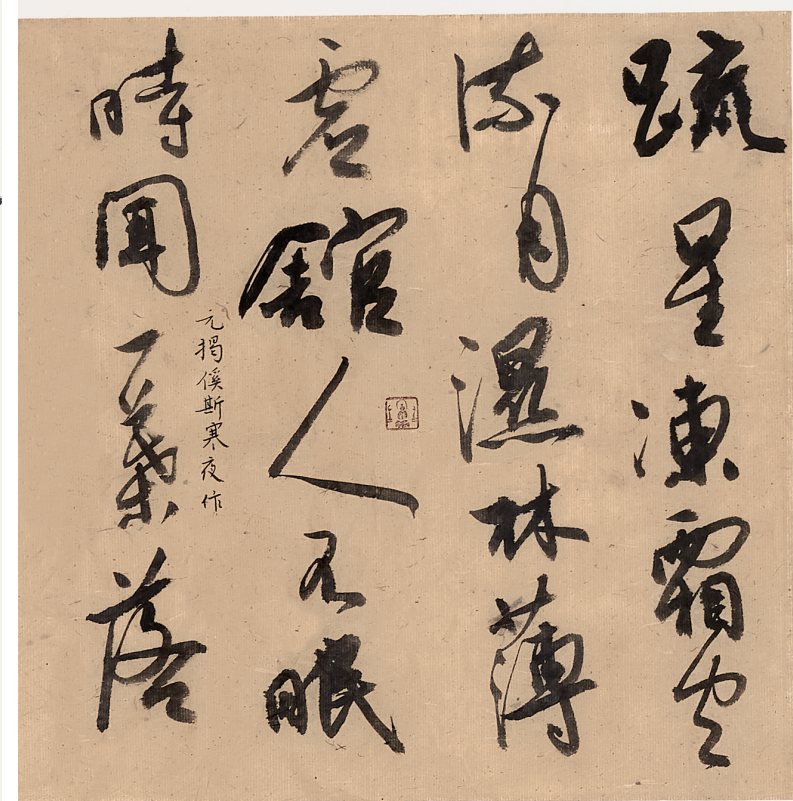 疏星凍霜空
流月濕林薄
虛舘人不眠
時聞一葉落
元揭傒斯寒夜作